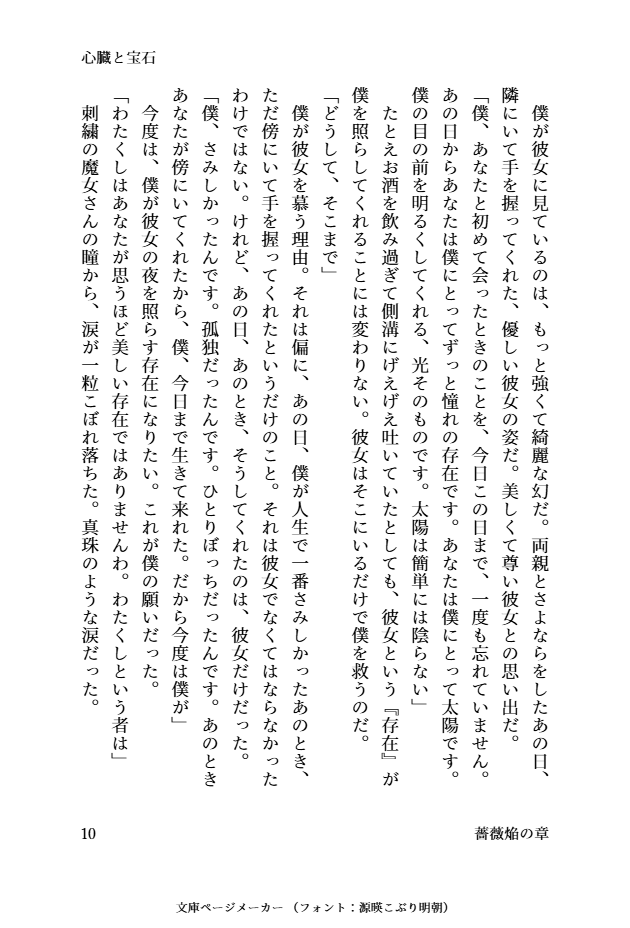 心臓と宝石
　僕が彼女に見ているのは、もっと強くて綺麗な幻だ。両親とさよならをしたあの日、
隣にいて手を握ってくれた、優しい彼女の姿だ。美しくて尊い彼女との思い出だ。
「僕、あなたと初めて会ったときのことを、今日この日まで、一度も忘れていません。
あの日からあなたは僕にとってずっと憧れの存在です。あなたは僕にとって太陽です。
僕の目の前を明るくしてくれる、光そのものです。太陽は簡単には陰らない」
　たとえお酒を飲み過ぎて側溝にげえげえ吐いていたとしても、彼女という『存在』が
僕を照らしてくれることには変わりない。彼女はそこにいるだけで僕を救うのだ。
「どうして、そこまで」
　僕が彼女を慕う理由。それは偏に、あの日、僕が人生で一番さみしかったあのとき、
ただ傍にいて手を握ってくれたというだけのこと。それは彼女でなくてはならなかった
わけではない。けれど、あの日、あのとき、そうしてくれたのは、彼女だけだった。
「僕、さみしかったんです。孤独だったんです。ひとりぼっちだったんです。あのとき
あなたが傍にいてくれたから、僕、今日まで生きて来れた。だから今度は僕が」
　今度は、僕が彼女の夜を照らす存在になりたい。これが僕の願いだった。
「わたくしはあなたが思うほど美しい存在ではありませんわ。わたくしという者は」
　刺繍の魔女さんの瞳から、涙が一粒こぼれ落ちた。真珠のような涙だった。
薔薇焔の章
10
文庫ページメーカー（フォント：源暎こぶり明朝）